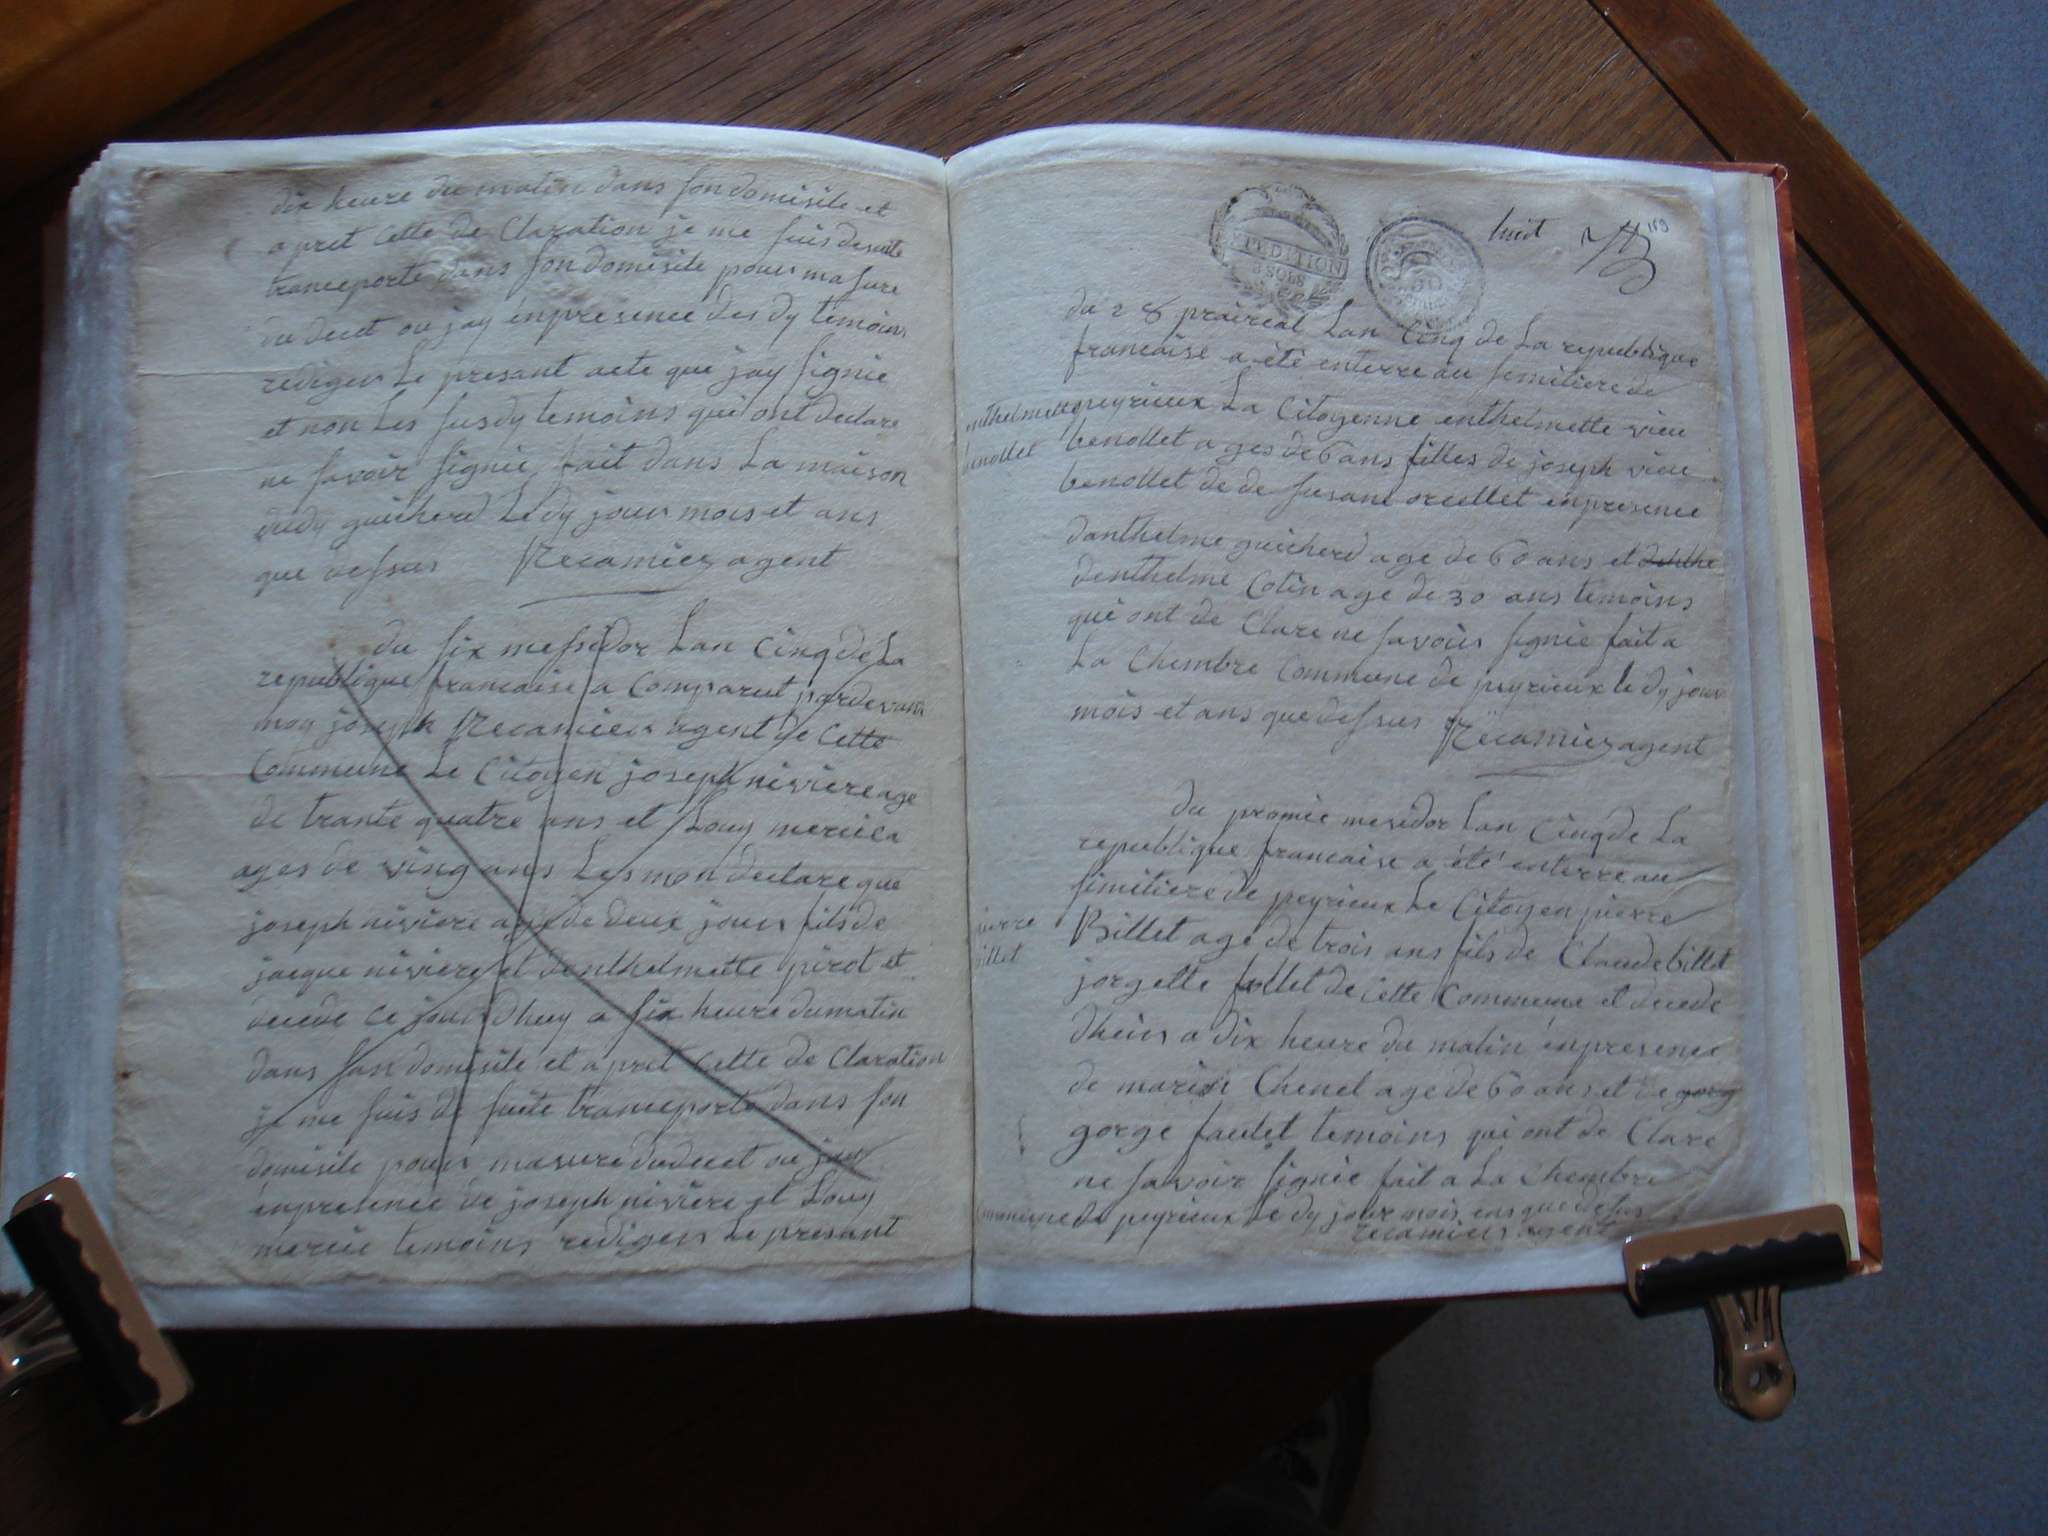 dix heure du matin dans son domisile et
a pret cette de Claration je me suis desuite
tranceporte dans son domisile pour masure
du decet ou jay enpresence des dy temoins
rediger Le presant acte que jay signie
et non Les susdy temoins qui ont declare
ne savoir signie fait dans La maison
dudy guicherd Ledy jour mois et ans
que dessus Recamier agent
du six messidor Lan Cinq de La
republique francaise a Comparut pardevant
moy joseph Recamier agent de Cette
Commune Le Citoyen joseph niviere age
de trante quatre ans et Louy
ages de ving ans Les mon declare que
joseph niviere age de deux jour fils de
jacque niviere et denthelmette pirot et
decede ce jour dhuy a six heure du matin
dans son domisile et a pret cette de Claration
je me suis de suite tranceporte dans son
domisile pour masure dudecet ou jay
enpresence de joseph niviere et Louy
mercie temoins rediger Le presant
huit 153
EXPEDITION
3 SOLS
du 28 prairéal Lan Cinq de La republique
francaise a été enterre au semitiere de
peyrieux La Citoyenne enthelmette vieu
benollet ages de 6 ans filles de joseph vieu
benollet de de susane oreellet enpresence
danthelme guicherd age de 60 ans et
denthelme Cotin age de 30 ans temoins
qui ont de Clare ne savoir signie fait a
La Chembre Commune de peyrieux le dy jour
mois et ans que dessus Recamier agent
enthelmette
benollet
du promie mesidor Lan Cinq de La
republique francaise a été enterre au
simitiere de peyrieux Le Citoyen pierre
Billet age de trois ans fils de Claude billet
jorgette follet de cette Commune et decede
dheir a dix heure du matin enpresence
de marin Chenel age de 60 ans et de gorg
gorge faudet temoins qui ont de Clare
ne savoir signie fait a La Chembre
Commune de peyrieux Le dy jour mois ens que desus
recamier agent
pierre
billet